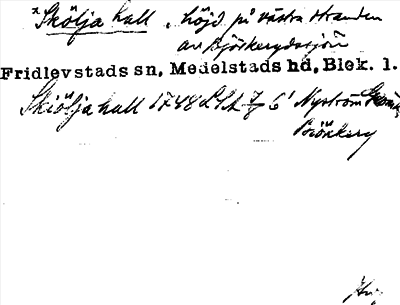 x Skölja hall, höjd på västra stranden
av Björkerydssjön
Fridlevstads sn, Medelstads hd, Blek. l.
Skiöljahall 1748 LSA 7/6¹ Nyström
Biörkery